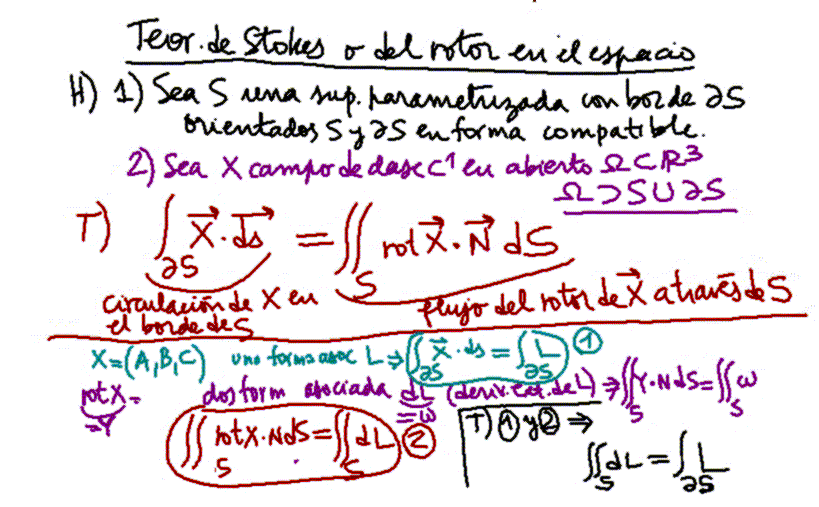 Teor. de Stokes o del rotor en el espacio
H) 1) Sea S una sup. parametrizada con borde ∂S
orientados S y ∂S en forma compatible.
2) Sea X campo de clase C¹ en abierto Ω⊂ℝ³
Ω⊃S∪∂S
T) ∫_∂S X⃗·ds⃗ = ∬_S rot X⃗·N⃗ dS
circulación de X en el borde de S
flujo del rotor de X⃗ a través de S
X=(A,B,C) uno forma asoc L ⇒ ∫_∂S X⃗·ds = ∫_∂S L ①
rot X = dos form asociada dL (deriv. ext. de L) ⇒ ∬_S Y·N dS = ∬_S ω
=Y =ω
∭_S rot X·N dS = ∬_S dL ②
T) ① y ② ⇒
∬_S dL = ∫_∂S L